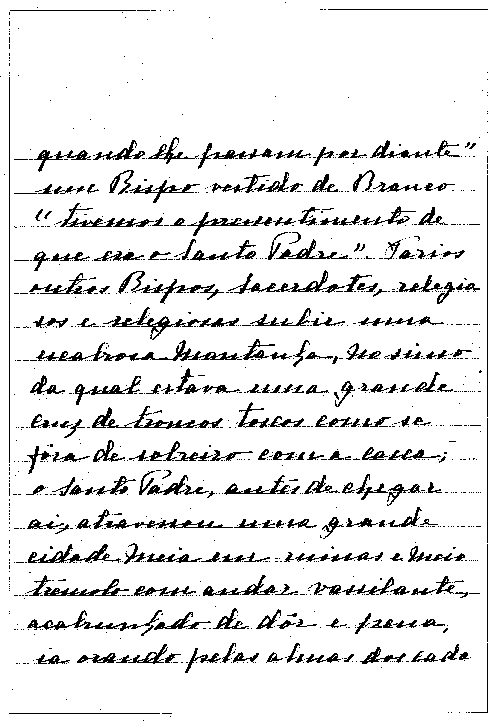 quando lhe passam por diante"
um Bispo vestido de Branco
"tivemos o pressentimento de
que era o Santo Padre". Varios
outros Bispos, Sacerdotes, religio
sos e religiosas subir uma
escabrosa montanha, no simo
da qual estava uma grande
Cruz de troncos toscos como se
fôra de sobreiro com a casca;
o Santo Padre, antes de chegar
aí, atravessou uma grande
cidade meia em ruinas e meio
trémulo com andar vassilante,
acabrunhado de dôr e pena,
ia orando pelas almas dos cada